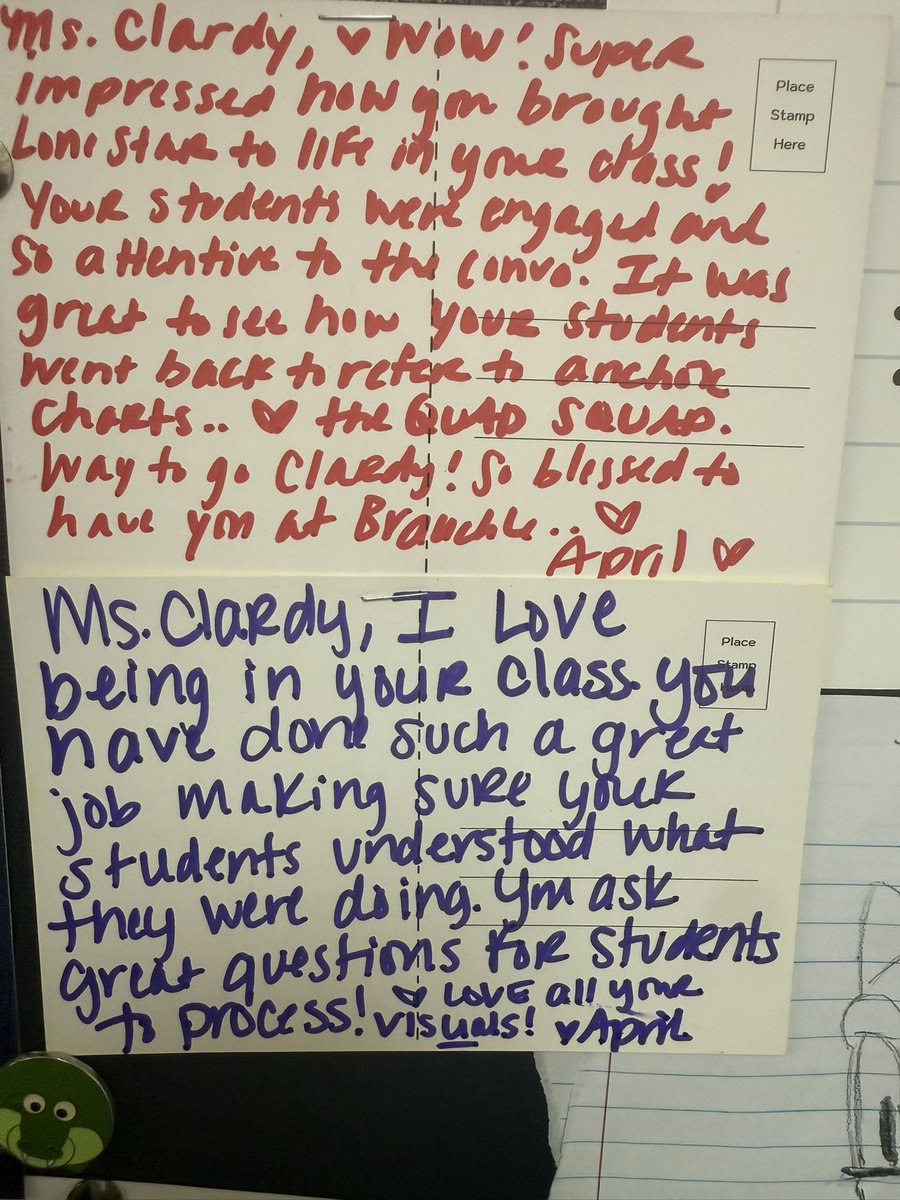 Ms. Clardy, ♥ Wow! Super
impressed how you brought
Lone Star to life in your class!
Your students were engaged and
so attentive to the convo. It was
great to see how your students
went back to refer to anchor
charts.. ♥ the QUAD SQUAD.
Way to go Clardy! So blessed to
have you at Brauchle.. ♥
April ♥
Place
Stamp
Here
Ms. Clardy, I Love
being in your class. you
have done such a great
job making sure your
students understood what
they were doing. You ask
great questions for students
to process! ♥ LOVE all your
visuals! ♥ April
Place
Stamp